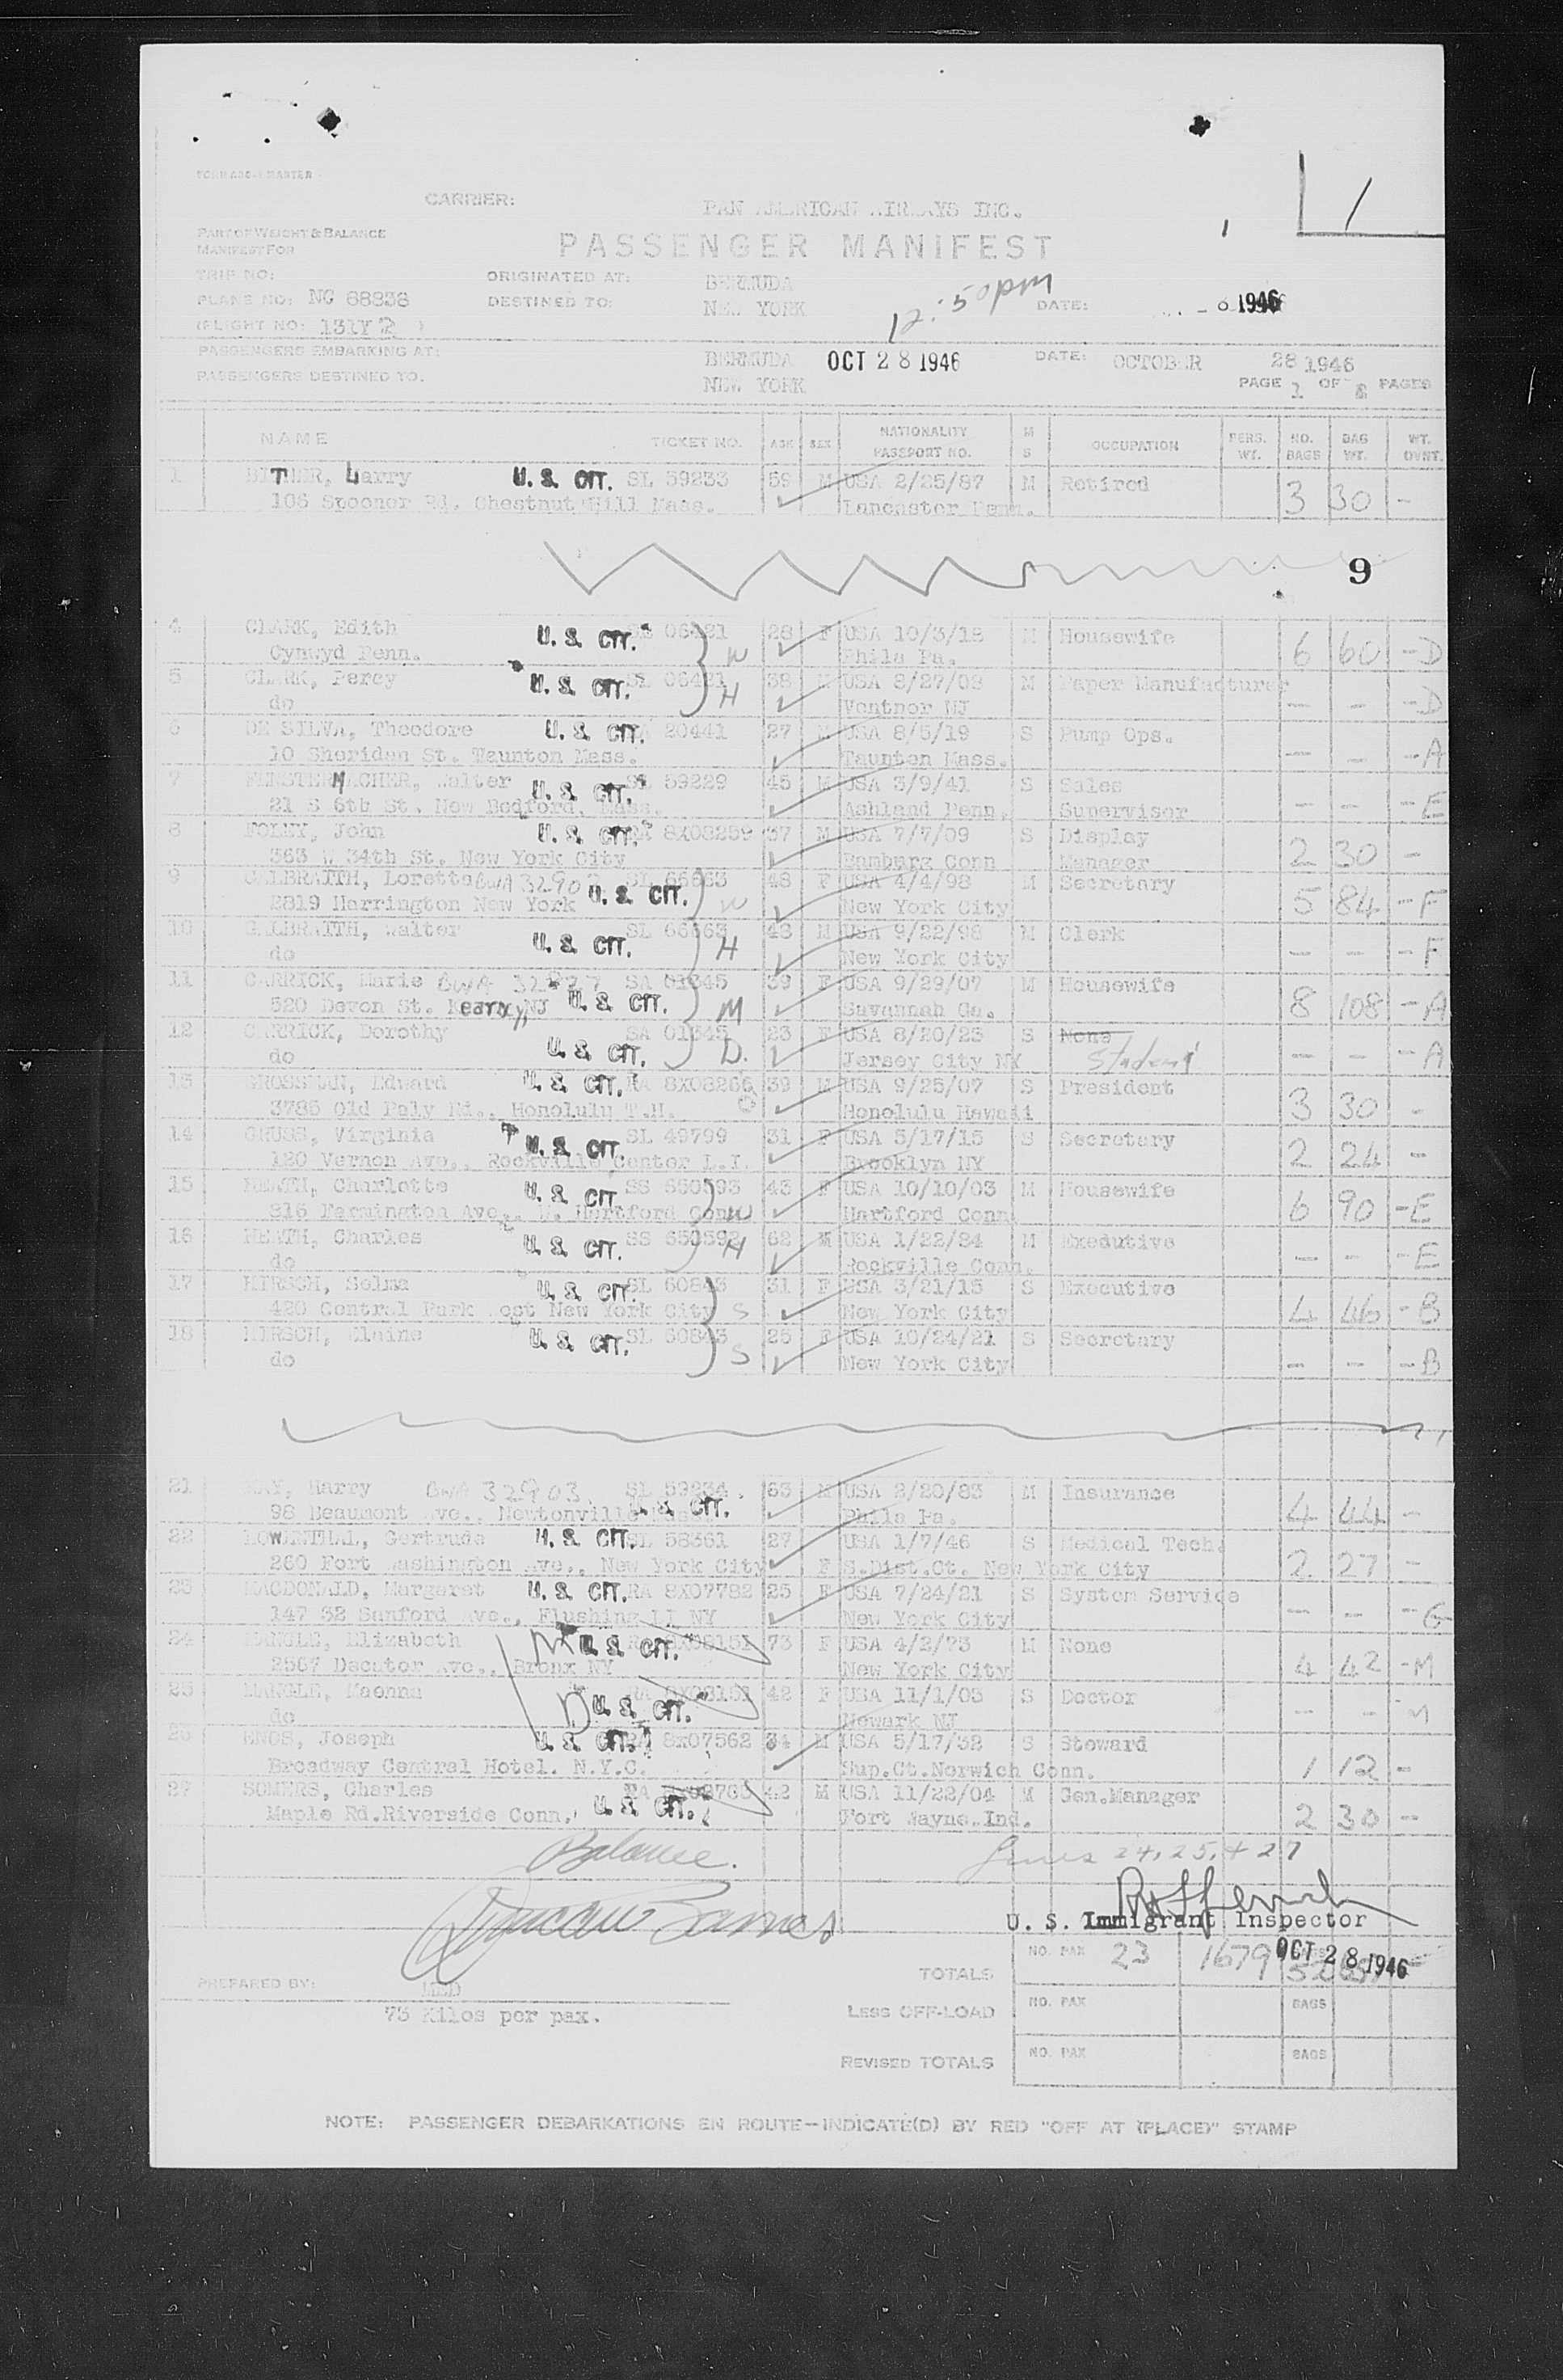 FORM ABC-1 MASTER
CARRIER: PAN AMERICAN AIRWAYS INC.
1
1
PART OF WEIGHT & BALANCE
MANIFEST FOR
PASSENGER MANIFEST
TRIP NO:
ORIGINATED AT: BERMUDA
PLANE NO: NC 88838
DESTINED TO: NEW YORK
12:50pm
DATE: 1946
(FLIGHT NO: 131Y2)
PASSENGERS EMBARKING AT: BERMUDA OCT 28 1946 DATE: OCTOBER 28 1946
PASSENGERS DESTINED TO. NEW YORK PAGE 1 OF PAGES
NAME TICKET NO. AGE SEX NATIONALITY PASSPORT NO. M S OCCUPATION PERS. WT. NO. BAGS BAG WT. WT. OVNT.
1 Larry U. S. CIT. SL 59233 59 M USA 2/25/87 M Retired 3 30 -
106 Spooner Rd. Chestnut Hill Mass. Lancaster Penn.
9
4 CLARK, Edith U. S. CIT. 06421 28 F USA 10/3/18 M Housewife 6 60 -D
Cynwyd Penn. W Phila Pa.
5 CLARK, Percy U. S. CIT. SL 06421 38 M USA 8/27/08 M Paper Manufacturer - - -D
do H Ventnor NJ
6 DE SILVA, Theodore U. S. CIT. 20441 27 M USA 8/5/19 S Pump Ops.
10 Sheridan St. Taunton Mass. Taunton Mass. - - -A
7 FENSTERMACHER, Walter U. S. CIT. 59229 45 M USA 3/9/41 S Sales
21 S 6th St. New Bedford, Mass. Ashland Penn. Supervisor - - -E
8 FOLEY, John U. S. CIT. 8X08259 37 M USA 7/7/09 S Display
363 W 34th St. New York City Conn Manager 2 30 -
9 GALBRAITH, Loretta U. S. CIT. 48 F USA 4/4/98 M Secretary 5 84 -F
2819 Harrington New York W New York City
10 GALBRAITH, Walter U. S. CIT. SL 66663 48 M USA 9/22/98 M Clerk - - -F
do H New York City
11 CARRICK, Marie U. S. CIT. SA 01345 39 F USA 9/29/07 M Housewife 8 108 -A
520 Devon St. Kearny, NJ M Savannah Ga.
12 CARRICK, Dorothy U. S. CIT. SA 01345 23 F USA 8/20/23 S None Student - - -A
do D. Jersey City NY
13 Edward U. S. CIT. 8X08266 39 M USA 9/25/07 S President 3 30 -
3785 Old Paly Rd., Honolulu T.H. Honolulu Hawaii
14 GRUSS, Virginia U. S. CIT. SL 49799 31 F USA 5/17/15 S Secretary 2 24 -
120 Vernon Ave., Rockville Center L.I. Brooklyn NY
15 HEATH, Charlotte U. S. CIT. SS 650593 43 F USA 10/10/03 M Housewife 6 90 -E
816 Farmington Ave., W. Hartford Conn W Hartford Conn
16 HEATH, Charles U. S. CIT. SS 650592 62 M USA 1/22/84 M Exedutive - - -E
do H Rockville Conn.
17 HIRSCH, Selma U. S. CIT. SL 60843 31 F USA 3/21/15 S Executive 4 46 -B
420 Central Park West New York City S New York City
18 HIRSCH, Elaine U. S. CIT. SL 60843 25 F USA 10/24/21 S Secretary - - -B
do S New York City
21 Harry 32903 SL 59234 63 M USA 2/20/83 M Insurance 4 44 -
98 Beaumont Ave., Newtonville U. S. CIT. Phila Pa.
22 LOWENTHAL, Gertrude U. S. CIT. SL 58361 27 USA 1/7/46 S Medical Tech. 2 27 -
260 Fort Washington Ave., New York City F S.Dist.Ct. New York City
23 MACDONALD, Margaret U. S. CIT. RA 8X07782 25 F USA 7/24/21 S System Service - - -G
147 32 Sanford Ave., Flushing LI NY New York City
24 Elizabeth M U. S. CIT. 73 F USA 4/2/73 M None 4 42 -M
2567 Decator Ave., Bronx NY New York City
25 D U. S. CIT. 42 F USA 11/1/03 S Doctor - - M
do Newark NJ
26 ENOS, Joseph U. S. CIT. 8X07562 34 M USA 5/17/32 S Steward 1 12 -
Broadway Central Hotel. N.Y.C. Sup.Ct.Norwich Conn.
27 SOMERS, Charles U. S. CIT. 42 M USA 11/22/04 M Gen.Manager 2 30 -
Maple Rd.Riverside Conn. Fort Wayne.Ind.
Balance. Lines 24, 25, + 27
Duncan Barnes
U. S. Immigrant Inspector
TOTALS NO. PAX 23 1679 OCT 28 1946
PREPARED BY: MED
75 Kilos per pax. LESS OFF-LOAD NO. PAX BAGS
REVISED TOTALS NO. PAX BAGS
NOTE: PASSENGER DEBARKATIONS EN ROUTE—INDICATE(D) BY RED "OFF AT (PLACE)" STAMP